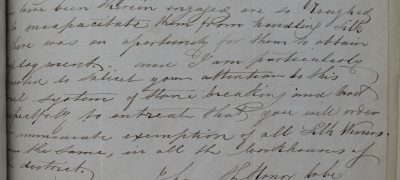 have been therein engaged are so roughed
to incapacitate them from handling Silk
there was an opertunity for them to obtain
ployment. and I am particularly
to solicit your attention to this
system of Stone breaking and most
pectfully to entreat that you will order
immediate exemption of all Silk Weavers
the Same, in all the Workhouses of
district.
Honor to be